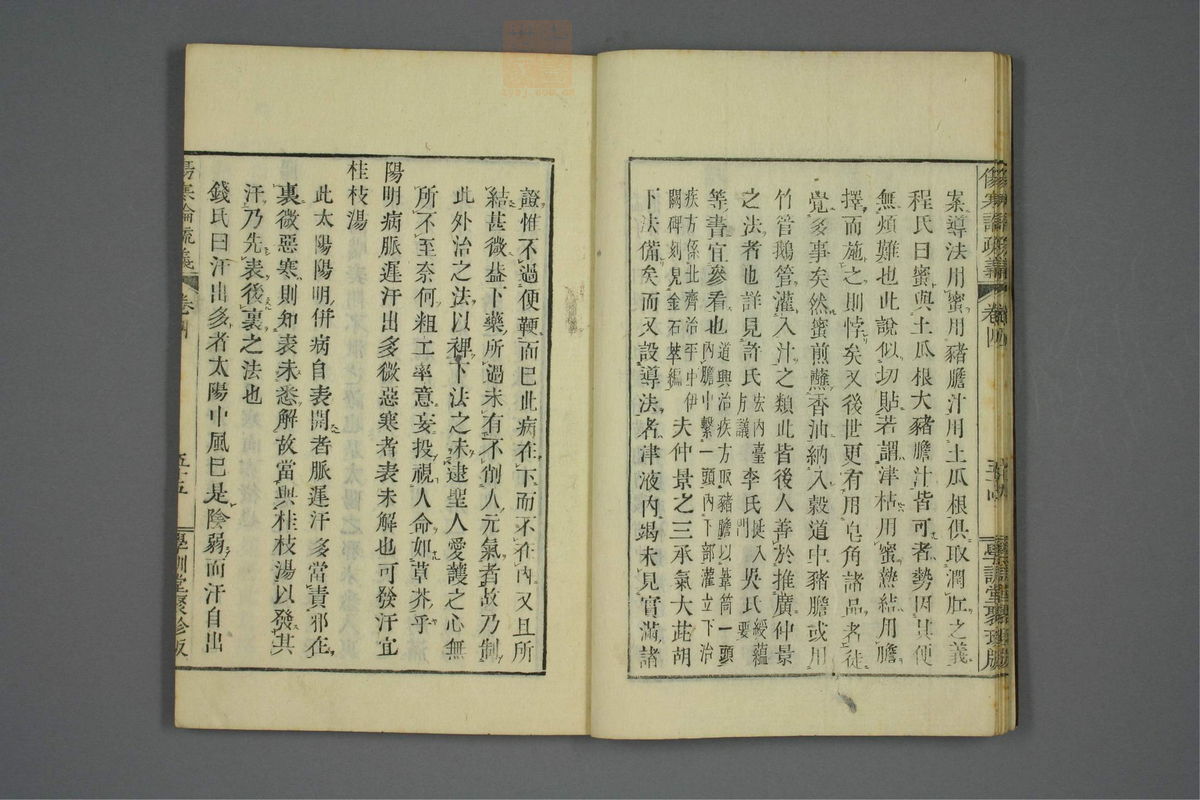 案導法用蜜用豬膽汁用土瓜根俱取潤肛之義
程氏曰蜜與土瓜根大豬膽汁皆可者勢因其便
無煩難也此說似切貼若謂津枯用蜜熱結用膽
擇而施之則悖矣又後世更有用皂角諸品者徒
覺多事矣然蜜煎蘸香油納入穀道中豬膽或用
竹管鵝管灌入汁之類此皆後人善於推廣仲景
之法者也詳見許氏宏內臺方議李氏梴入門吳氏綬蘊要
等書宜參看也道興治疾方取豬膽以葦筒一頭內膽中繫一頭內下部灌立下治
疾方係北齊治平中伊闕碑刻見金石萃編夫仲景之三承氣大茈胡
下法備矣而又設導法者津液內竭未見實滿諸
傷寒論疏義
卷四
五十四
學訓堂聚珍版
證惟不過便鞕而已此病在下而不在內又且所
結甚微益下藥所過未有不削人元氣者故乃制
此外治之法以裨下法之未逮聖人愛護之心無
所不至奈何粗工率意妄投視人命如草芥乎
陽明病脈遲汗出多微惡寒者表未解也可發汗宜
桂枝湯
此太陽陽明併病自表開者脈遲汗多當責邪在
裏微惡寒則知表未悉解故當與桂枝湯以發其
汗乃先表後裏之法也
錢氏曰汗出多者太陽中風已是陰弱而汗自出
傷寒論疏義
卷四
五十五
學訓堂聚珍版